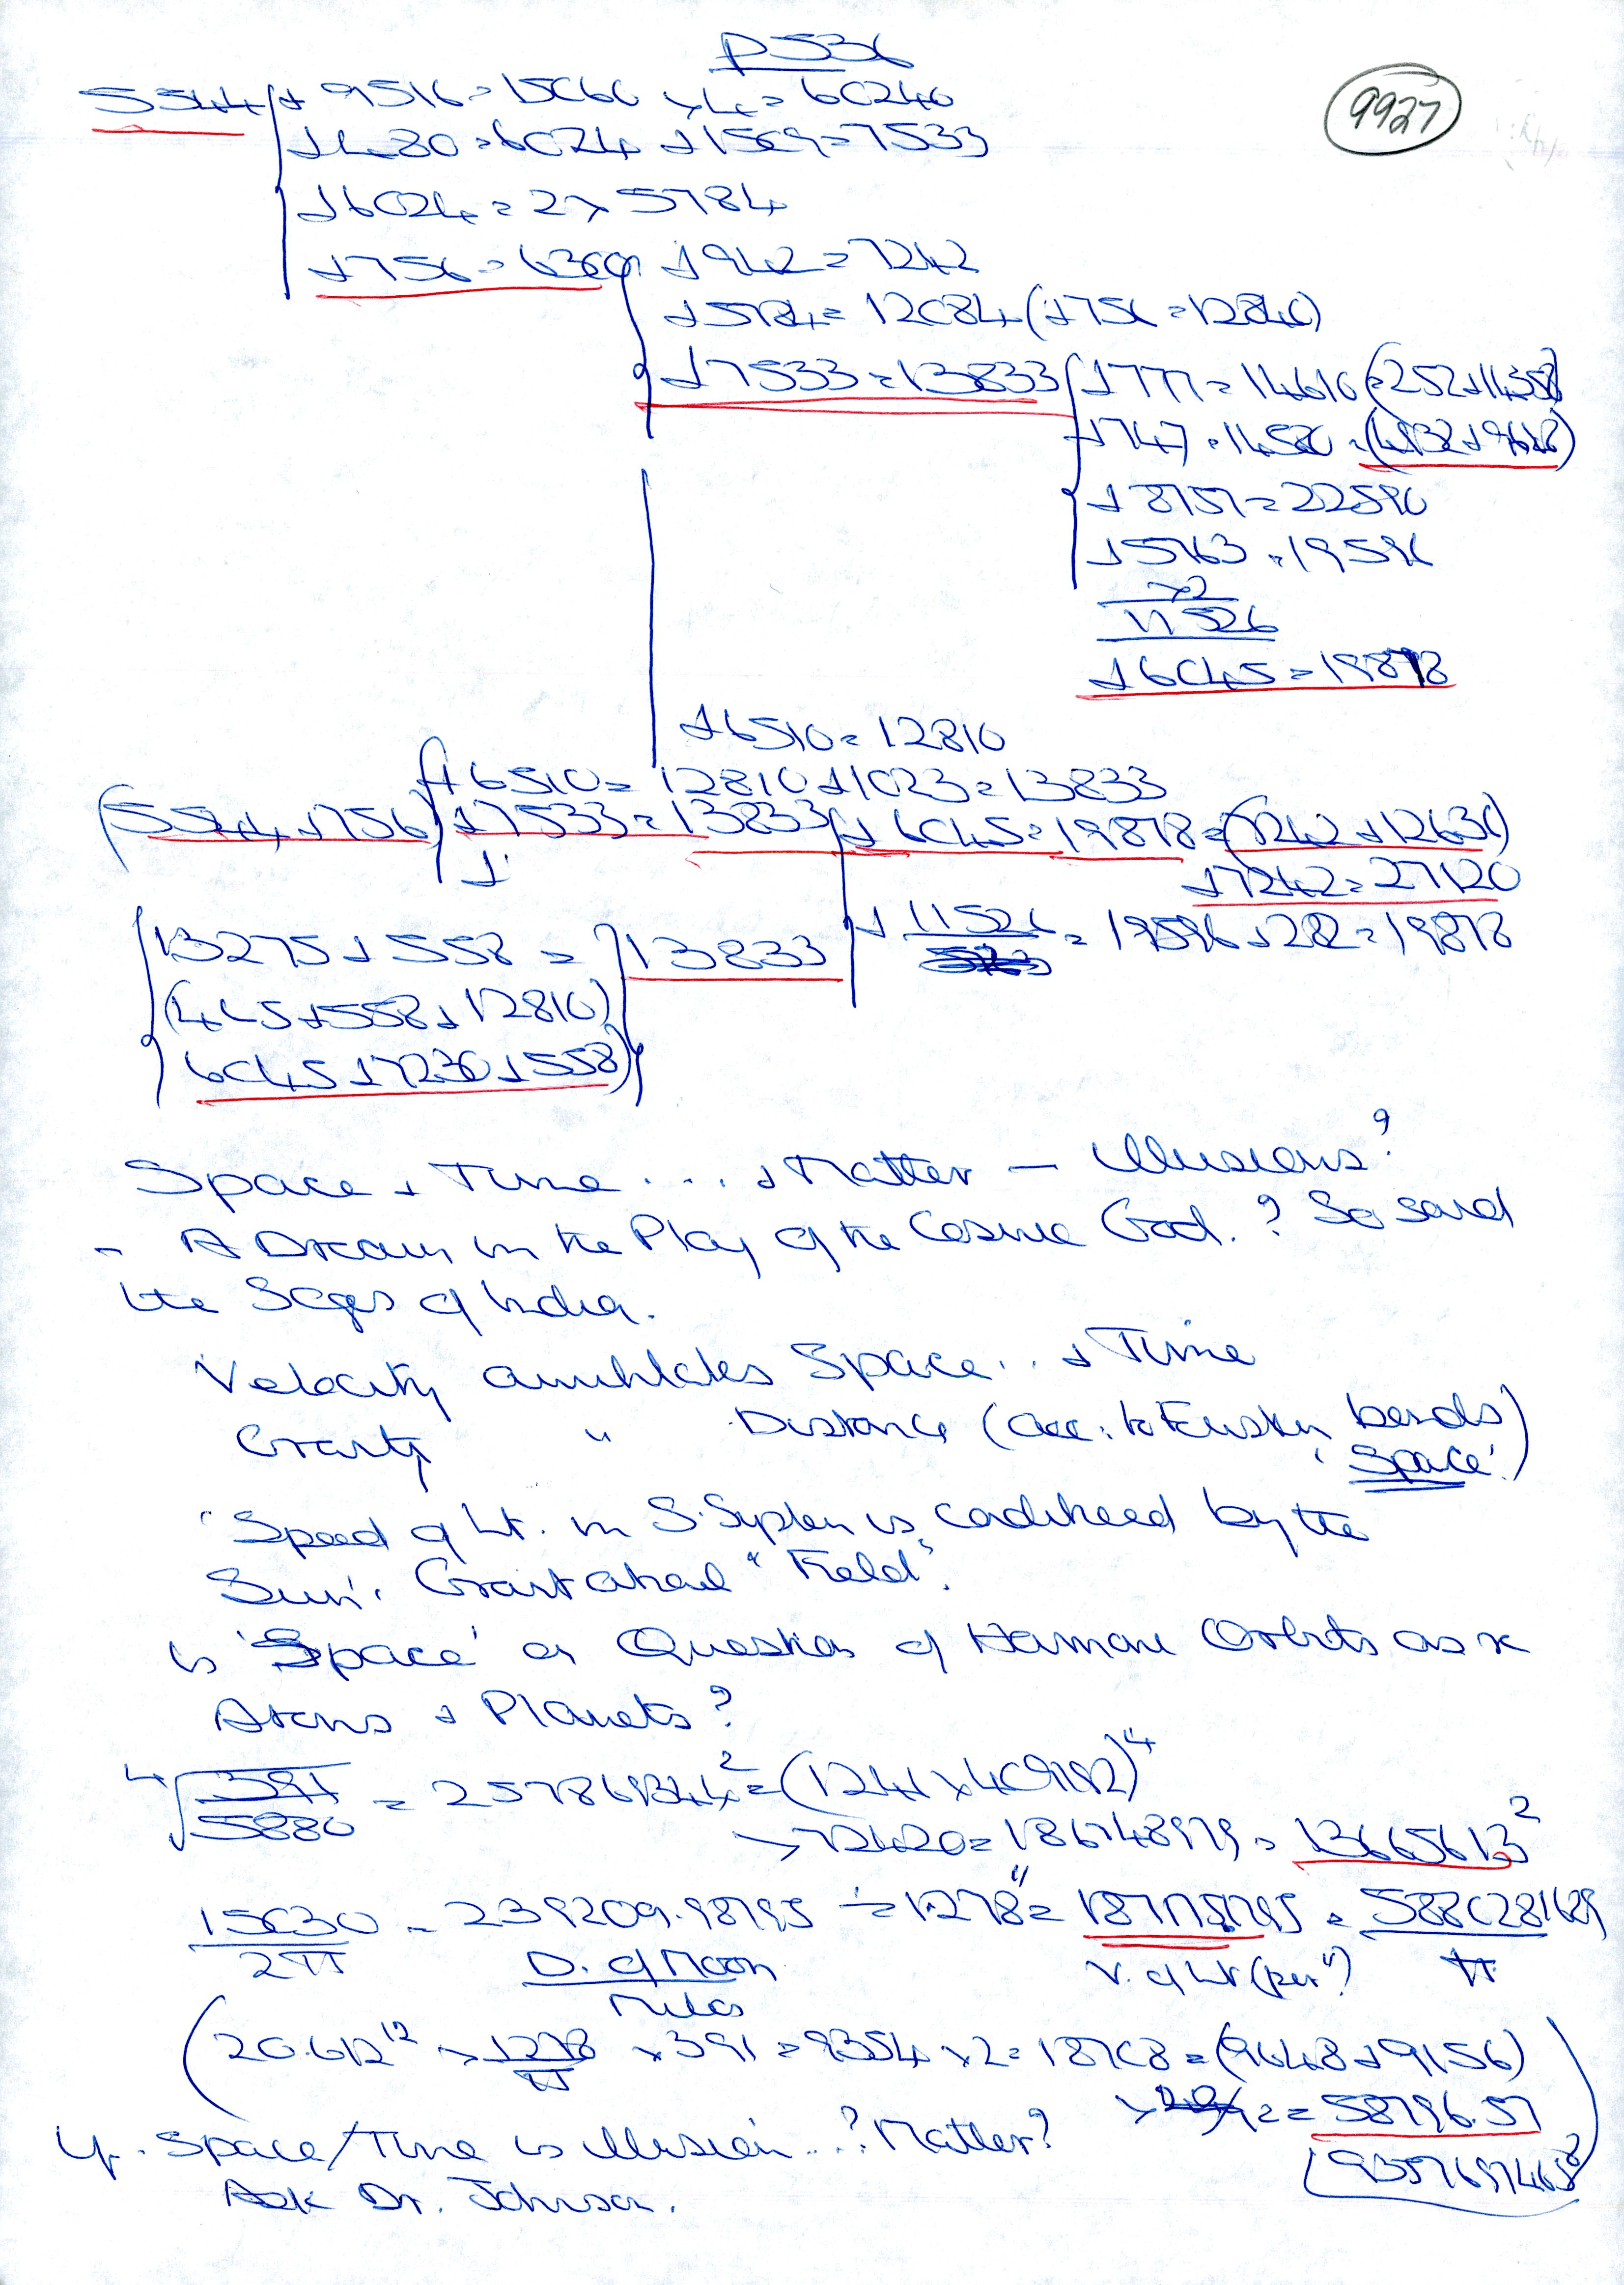 P536
9927
5544 + 9516 = 15060 x 4 = 60240
+ 480 = 6024 + 1509 = 7533
+ 6024 = 2 x 5784
+ 756 = 6300 + 942 = 7242
+ 5784 = 12084 (+ 756 = 12840)
+ 7533 = 13833 + 777 = 14610 (= 252 + 14358)
+ 747 = 14580 = (4932 + 9648)
+ 8757 = 22590
+ 5763 = 19596
x2
11526
+ 6045 = 19878
+ 6510 = 12810
+ 6510 = 12810 + 1023 = 13833
(5544 + 756) + 7533 = 13833 + 6045 = 19878 = (7242 + 12636)
+ 7242 = 27120
13275 + 558 = 13833 + 11526 = 19596 + 282 = 19878
(465 + 558 + 12810)
6045 + 7230 + 558)
Space + Time . . . + Matter — Illusions?
- A Dream in the Play of the Cosmic God. ? So said
the Sages of India.
Velocity annihilates Space . . + Time
Gravity " Distance (acc. to Einstein bends
'Space'.)
'Speed of Lt. in S. System is conditioned by the
Sun's Gravitational "Field".
Is 'Space' a Question of Harmonic Orbits as in
Atoms + Planets?
4√391/5880 = 257869344² = (1241 x 409182)⁴
x 72420 = 186748979 = 13665613²
15030/2π = 239209.98795 ÷ 1.278" = 187175795 = 5880281629/π
D. of Moon
Miles
V. of Lt (per ")
(20.612¹² x 1278/π x 391 = 9354 x 2 = 18708 = (9648 + 9156)
= 58796.57
(9357697463²)
If. Space/Time is illusion . . ? Matter?
Ask Dr. Johnson.